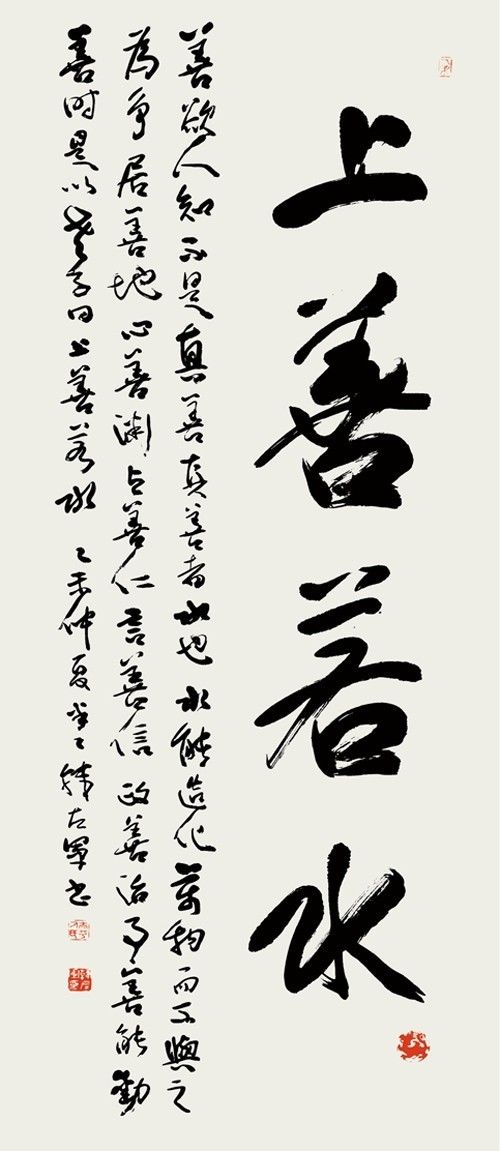 上善若水
善欲人知不是真善真善者水也水能造化萬物而不與之
為爭居善地心善渊与善仁言善信政善治事善能動
善時是以老子曰上善若水 乙未仲夏 韩左軍书